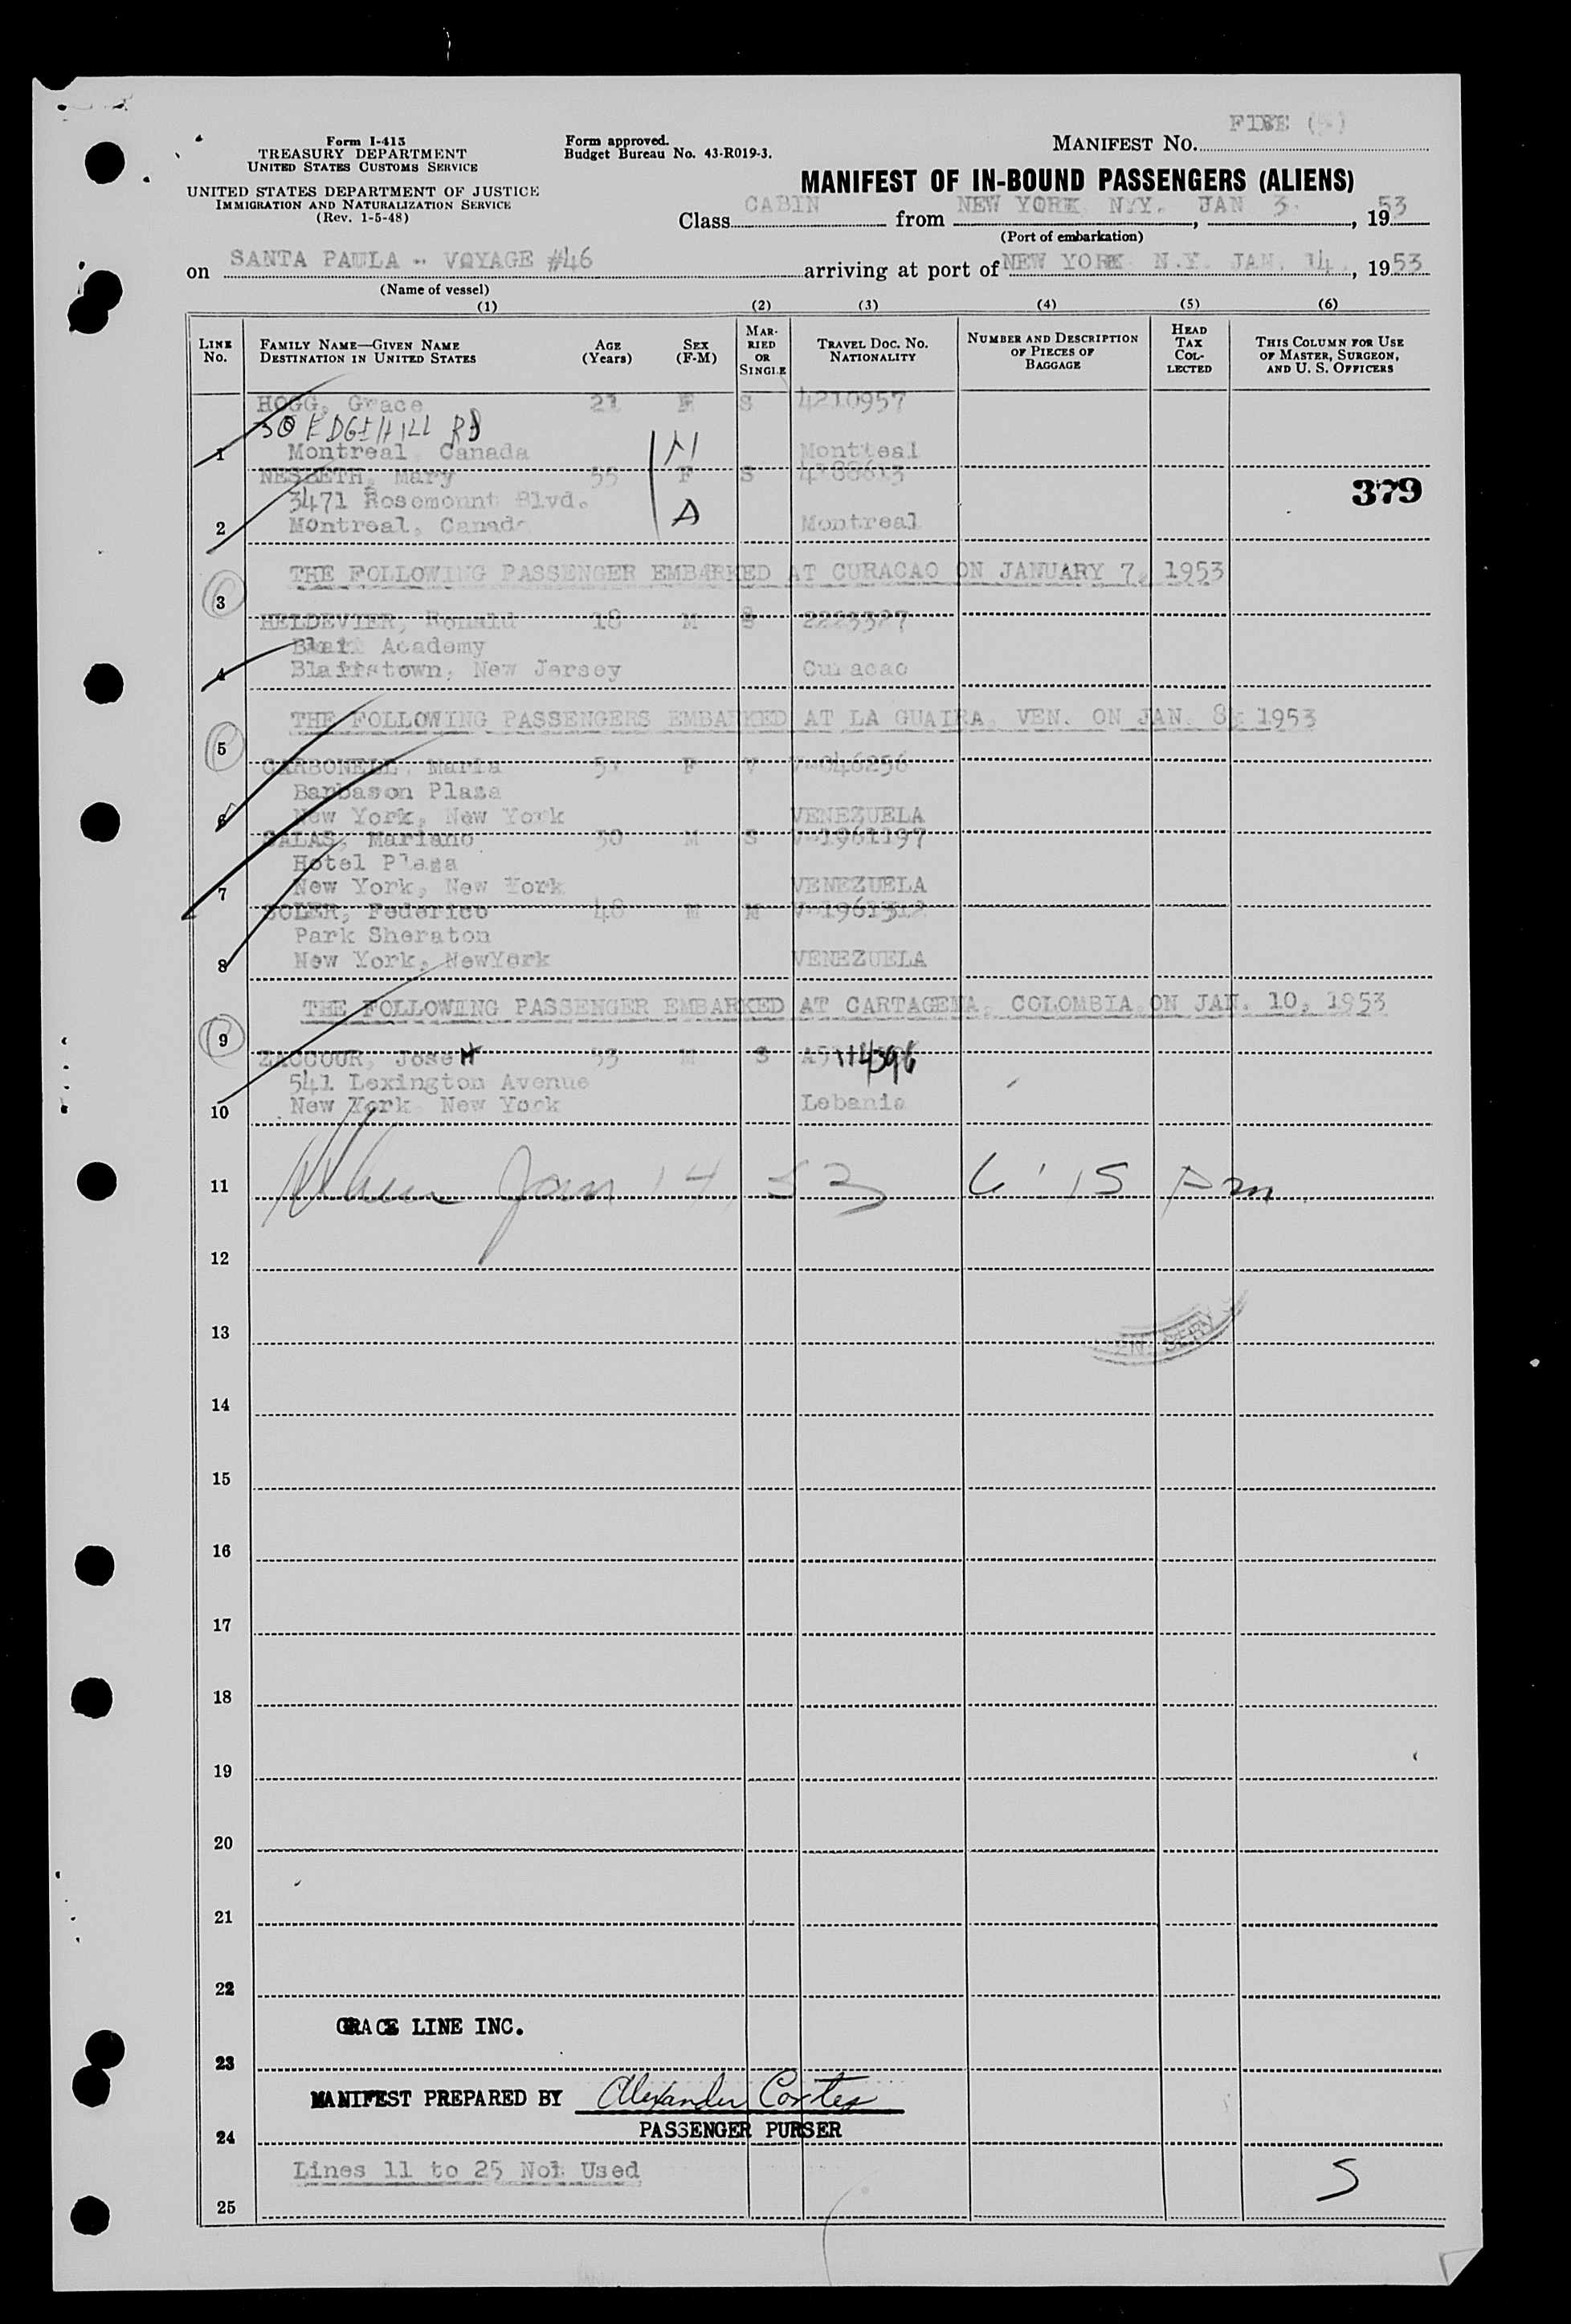 Form I-415
TREASURY DEPARTMENT
UNITED STATES CUSTOMS SERVICE
UNITED STATES DEPARTMENT OF JUSTICE
IMMIGRATION AND NATURALIZATION SERVICE
(Rev. 1-5-48)
Form approved.
Budget Bureau No. 43-R019-3.
MANIFEST NO.
MANIFEST OF IN-BOUND PASSENGERS (ALIENS)
Class CABIN from NEW YORK N.Y. JAN 3, 1953
(Port of embarkation)
on SANTA PAULA - VOYAGE #46 arriving at port of NEW YORK N.Y. JAN. 14, 1953
(Name of vessel)
(1) (2) (3) (4) (5) (6)
LINE No. FAMILY NAME—GIVEN NAME DESTINATION IN UNITED STATES AGE (Years) SEX (F-M) MARRIED OR SINGLE TRAVEL DOC. NO. NATIONALITY NUMBER AND DESCRIPTION OF PIECES OF BAGGAGE HEAD TAX COLLECTED THIS COLUMN FOR USE OF MASTER, SURGEON, AND U. S. OFFICERS
HOGG, Grace 21 F S 4210957
30 EDGEHILL RD
1 Montreal Canada Montreal
NESBETH, Mary 55 F S 4188613
3471 Rosemount Blvd.
379
2 Montreal, Canada A Montreal
THE FOLLOWING PASSENGER EMBARKED AT CURACAO ON JANUARY 7, 1953
3
HELDEVIER, Ronald 18 M S 2223327
Blair Academy
4 Blairstown, New Jersey Curacao
THE FOLLOWING PASSENGERS EMBARKED AT LA GUAIRA, VEN. ON JAN. 8, 1953
5
CARBONELL, Maria F V V-046256
Barbason Plaza
6 New York, New York VENEZUELA
SALAS, Mariano 50 M S V-1961197
Hotel Plaza
7 New York, New York VENEZUELA
SOLER, Federico 48 M M V-1961312
Park Sheraton
8 New York, NewYork VENEZUELA
THE FOLLOWING PASSENGER EMBARKED AT CARTAGENA, COLOMBIA ON JAN. 10, 1953
9
ZACCOUR, Joseph 53 M S
541 Lexington Avenue
10 New York New York Lebania
11 Jan 14 53 6:15 Pm
12
13
14
15
16
17
18
19
20
21
22
GRACE LINE INC.
23
MANIFEST PREPARED BY Alexander Cortes
PASSENGER PURSER
24
Lines 11 to 25 Not Used
25